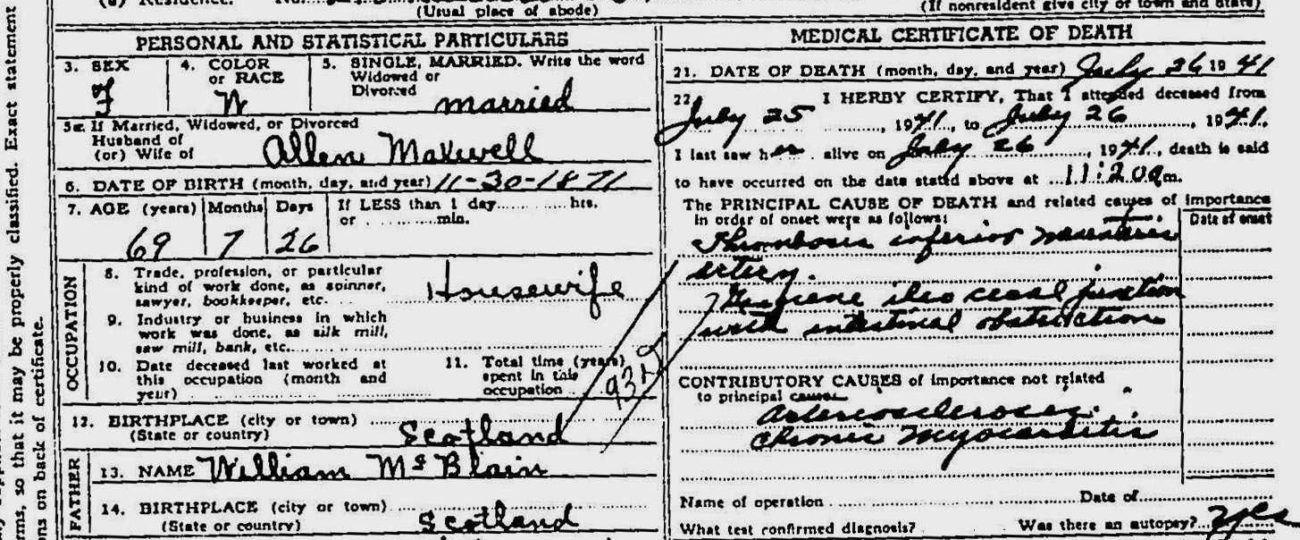 (Usual place of abode)
(If nonresident give city or town and state)
PERSONAL AND STATISTICAL PARTICULARS
3. SEX
F
4. COLOR
or RACE
W
5. SINGLE, MARRIED. Write the word
Widowed or
Divorced
married
5a. If Married, Widowed, or Divorced
Husband of
(or) Wife of
Allen Maxwell
6. DATE OF BIRTH (month, day, and year) 11-30-1871
7. AGE (years) Months Days If LESS than 1 day hrs.
or min.
69 7 26
OCCUPATION
8. Trade, profession, or particular
kind of work done, as spinner,
sawyer, bookkeeper, etc.
Housewife
9. Industry or business in which
work was done, as silk mill,
saw mill, bank, etc.
10. Date deceased last worked at
this occupation (month and
year)
11. Total time (years)
spent in this
occupation
12. BIRTHPLACE (city or town)
(State or country)
Scotland
FATHER
13. NAME William McBlain
14. BIRTHPLACE (city or town)
(State or country)
Scotland
MEDICAL CERTIFICATE OF DEATH
21. DATE OF DEATH (month, day, and year) July 26 1941
22. I HERBY CERTIFY, That I attended deceased from
July 25, 1941, to July 26, 1941.
I last saw her alive on July 26, 1941, death is said
to have occurred on the date stated above at 11:20 a m.
The PRINCIPAL CAUSE OF DEATH and related causes of importance
in order of onset were as follows:
Date of onset
Thrombosis inferior mesenteric
artery.
Gangrene ileo cecal junction
with intestinal obstruction
CONTRIBUTORY CAUSES of importance not related
to principal cause
Arteriosclerosis.
Chronic Myocarditis
Name of operation Date of
What test confirmed diagnosis? Was there an autopsy? Yes
erms, so that it may be properly classified. Exact statement
ons on back of certificate.